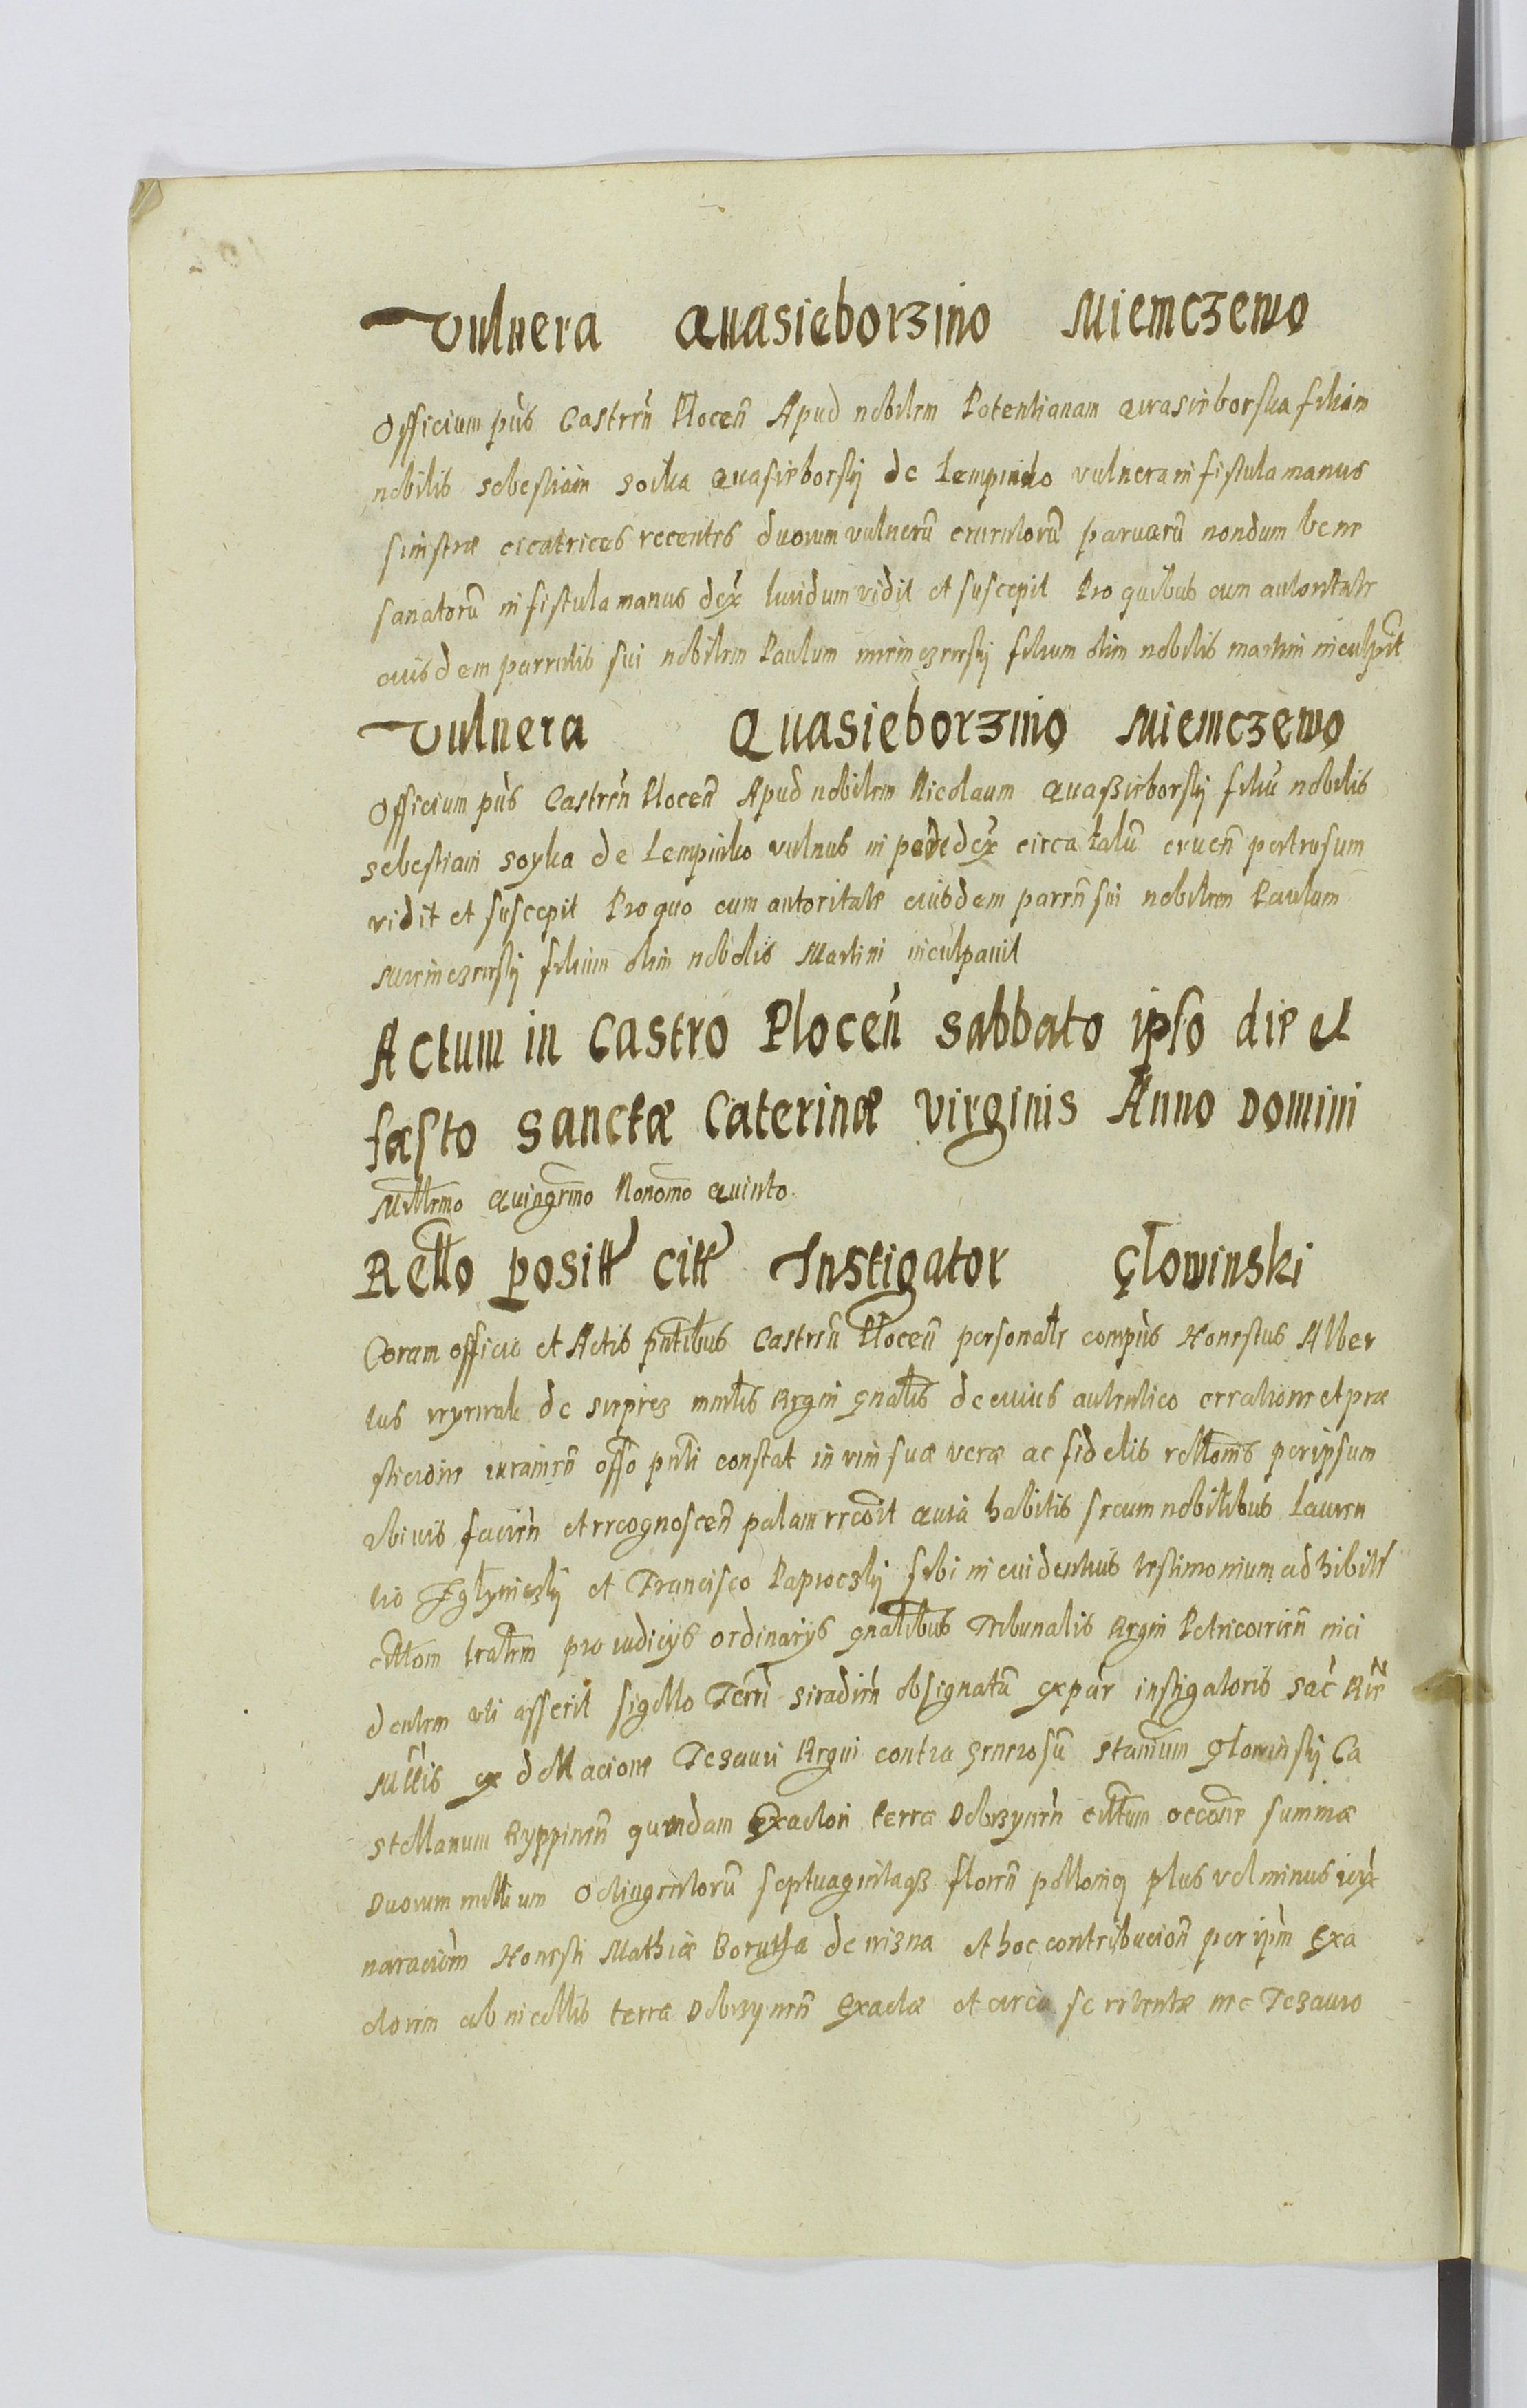 Vulnera Quasieborzino Niemczewo
Officium pñs Castreñ Ploceñ Apud nobilem Potentianam Quasieborska filiam
nobilis Sebestiani Soika Quasieborskij de Lempinko vulnera in fistula manus
sinistræ cicatrices recentes duorum vulnerũ cruentorũ parvarũ nondum bene
sanatorũ in fistula manus dex̃ lividum vidit et suscepit Pro quibus cum autoritate
eiusdem parentis sui nobilem Paulum Niemczewskij filium olim nobilis Martini inculpavit
Vulnera Quasieborzino Niemczewo
Officium pñs Castreñ Plocen̄ Apud nobilem Nicolaum Quasieborskij filiũ nobilis
Sebestiani Soyka de Lempinko vulnus in pede dex̃ circa talũ cruen̄ pertrusum
vidit et suscepit Pro quo cum autoritate eiusdem paren̄ sui nobilem Paulum
Niemczewskij filium olim nobilis Martini inculpavit
Actum in Castro Ploceñ Sabbato ipso die et
fæsto Sanctæ Caterinæ Virginis Anno Domini
Millmo Quingemo Nonomo Quinto.
Rello positt citt Instigator Głowinski
Coram officio et Actis pntibus Castren̄ Plocen̄ personalr compũs Honestus Alber
tus de Sieprez mnrlis Regni gnalis de cuius autentico creatione et præ
sticione iuramen̄ offo pnti constat in vim suæ veræ ac fidelis relloms per ipsum
obivis facien̄ et recognoscen̄ palam recoit Quia habitis secum nobilibus Lauren
tio et Francisco Paproczkij sibi in evidentius testimonium adhibitt
cittom tralem pro iudicijs ordinarijs gnalibus Tribunalis Regni Petricovien̄ inci
dentem uti asserit sigillo Terri Siradien̄ obsignatũ ex par instigatoris Sac̃ Rie
Mttis ex dellacione Tezauri Regni contra generosũ Stanium Głowinskij Ca
stellanum Ryppinen̄ quondam Exactori terræ Dobrzynen̄ cittum occone summæ
Duorum millium Octingentorũ septuagintaqz floren̄ polloniq plus vel minus iux̃
naracioĩm Honesti Mathiæ Borutha de et hoc contribucion̄ per ipm Exa
ctorem ab incollis terræ Dobrzynen̄ Exactæ et circa se retentæ nec Tezauro